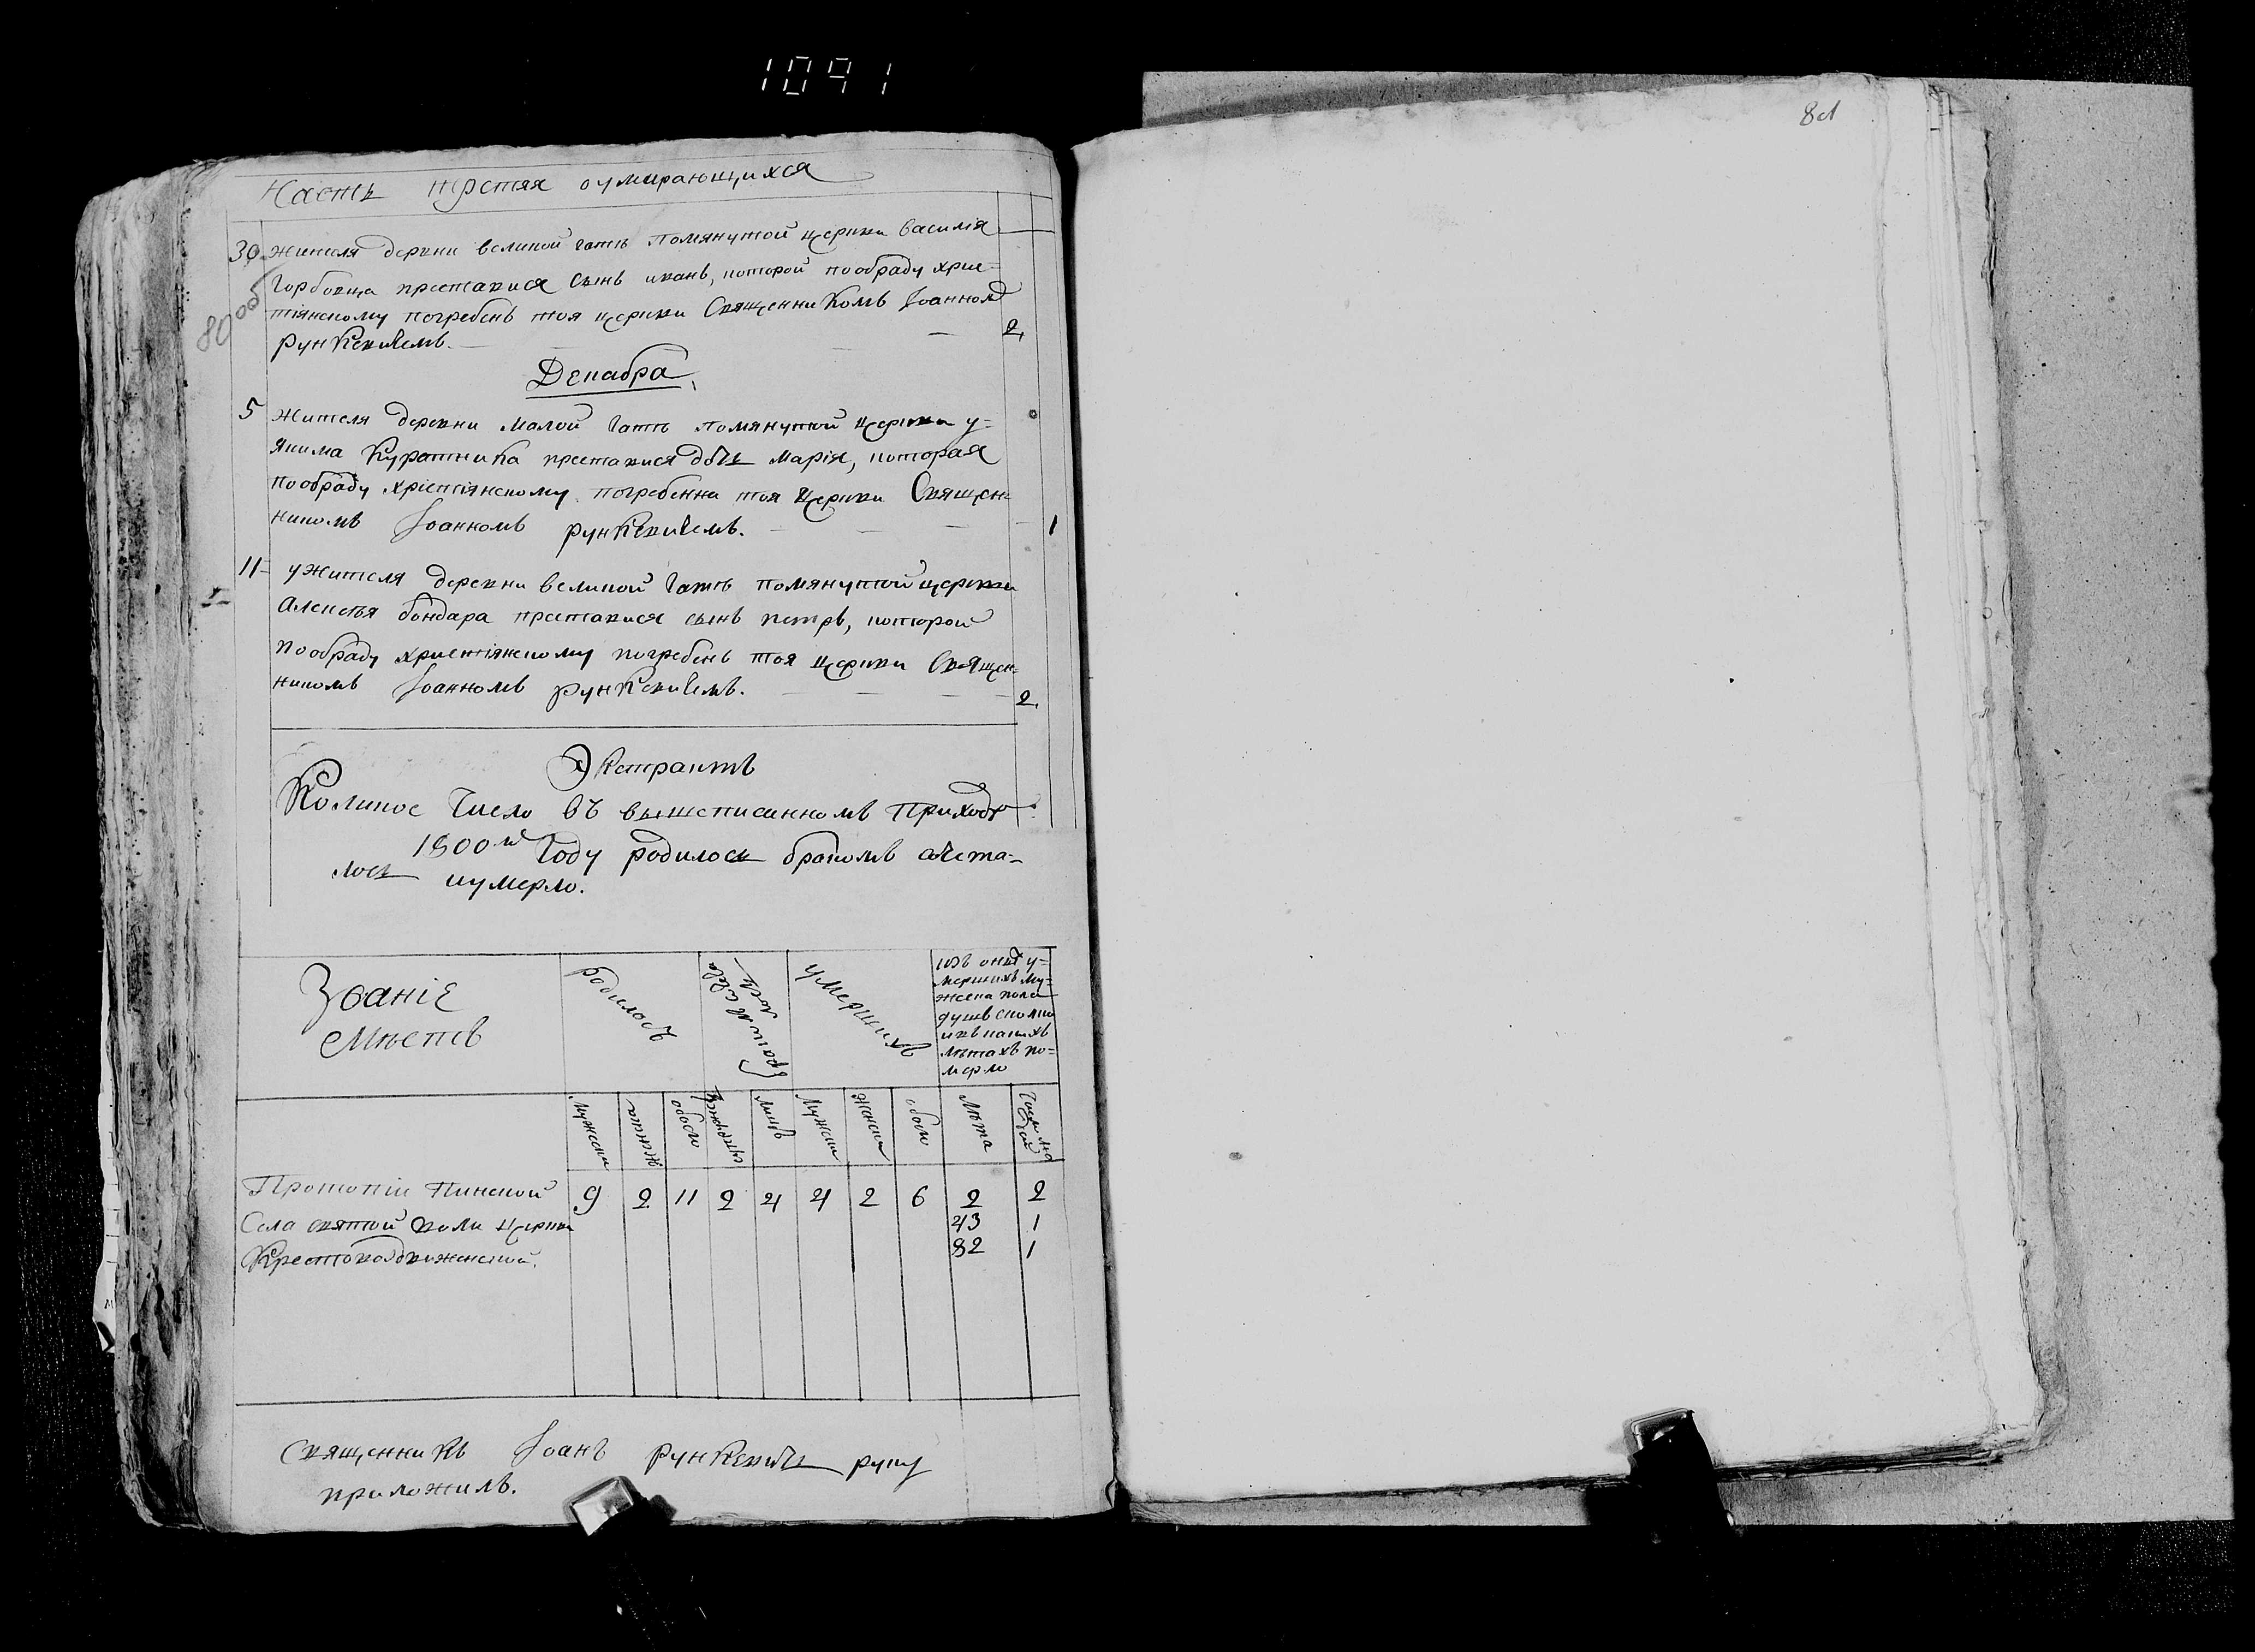 1091
81
Часть третяя оумирающихся
80 об
30 жителя деревни великой гать помянутой церкви василія
Горбовца преставися сынъ иванъ, которой пообраду хрис=
тіянскому погребенъ тоя церкви Священникомъ Іоанномъ
Рункевичемъ. 2
Декабра
5 жителя деревни малой гать помянутой церкви у=
Якима Куратника преставися дочь марія, которая
пообраду хрістіянскому погребенна тоя церкви Священ=
никомъ Іоанномъ Рункевичемъ. 1
11 ужителя деревни великой гать помянутой церкви
Алексѣя бондара преставися сынъ петръ, которой
пообраду христіянскому погребенъ тоя церкви Священ=
никомъ Іоанномъ Рункевичемъ. 2
Экстрактъ
Коликое число въ вышеписанномъ приходѣ
1800м году родилось бракомъ сочета=
лось иумерло.
Званіе
Мѣстъ
родилось
бракомъ соче
лось
умершихъ
изъ оныхъ у=
мершихъ му=
жеска пола
душъ сколко
ивъ какихъ
лѣтахъ по=
мерло
мужеска женска обоего первым мужеск женск обоего лѣта число
Протопіи Пинской 9 2 11 2 4 4 2 6 2 2
Села святой воли церкви 43 1
Крестовоздвиженской. 82 1
Священникъ Іоанъ Рункевичь руку
приложилъ.